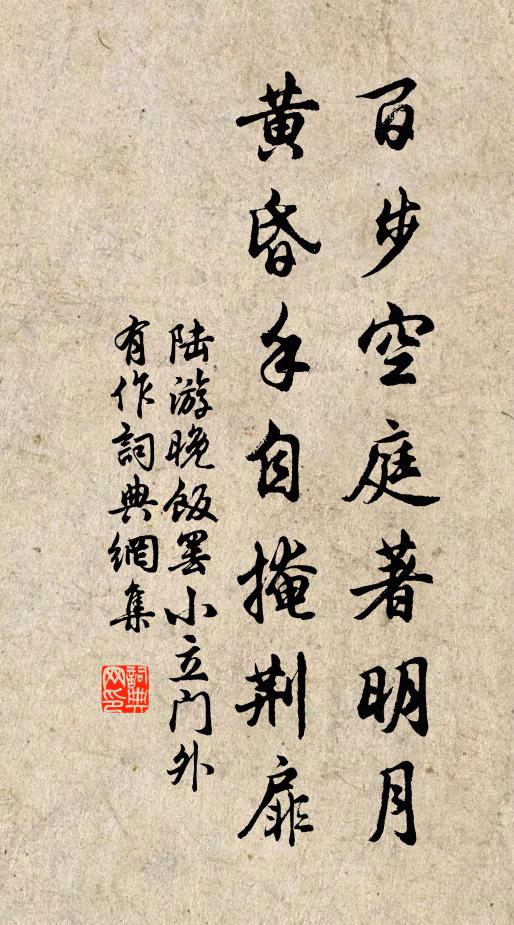 百步空庭著明月
黃昏手自掩荆扉
陆游晚飯罢小立门外
有作詞典網集
詞典
网印